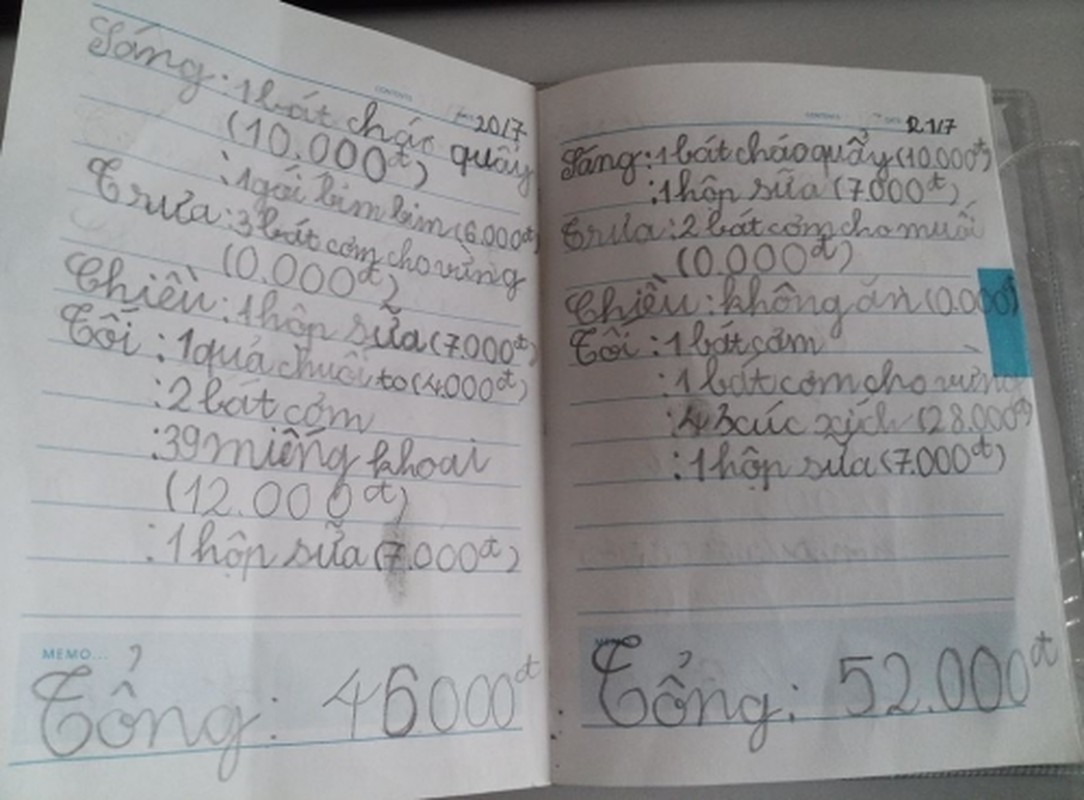 CONTENTS
20/7
Sáng: 1 bát cháo quẩy
(10.000đ)
: 1 gói bim bim (6.000đ)
Trưa: 3 bát cơm cho vừng
(0.000đ)
Chiều: 1 hộp sữa (7.000đ)
Tối: 1 quả chuối to (4.000đ)
: 2 bát cơm
: 39 miếng khoai
(12.000đ)
: 1 hộp sữa (7.000đ)
MEMO...
Tổng: 46000đ
CONTENTS
DATE
21/7
Sáng: 1 bát cháo quẩy (10.000đ)
: 1 hộp sữa (7.000đ)
Trưa: 2 bát cơm cho muối
(0.000đ)
Chiều: không ăn (0.000đ)
Tối: 1 bát cơm
: 1 bát cơm cho vừng
: 4 xúc xích (28.000đ)
: 1 hộp sữa (7.000đ)
MEMO
Tổng: 52.000đ